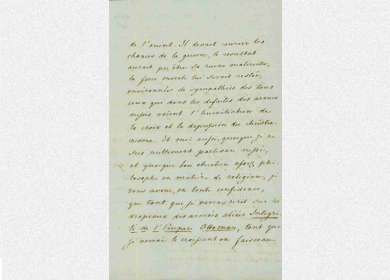 de l'orient. Il devait courir les
chances de la guerre, le resultat
aurait pu être sa ruine materielle,
la force morale lui serait restée,
environnée de sympathies de tous
ceux qui dans les defaites des armes
russes voient l'humiliation de
la croix et la depression du christia-
nisme. Et moi aussi, quoique je ne
suis nullement partisan russe,
et quoique bon chretien assez phi-
losophe en matière de religion, je
vous avoue, en toute confidence,
que tant que je verrai ecrit sur les
drapeaux des armées alliées Integri-
té de l'Empire Ottoman, tant que
je verrai le croissant en faisceau